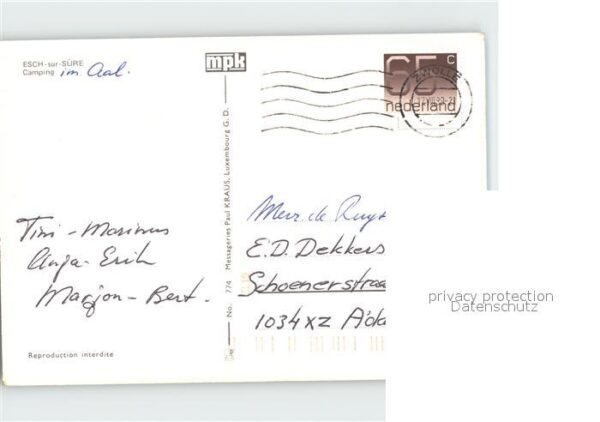 ESCH-sur-SÛRE
Camping im Aal.
mpk
65 c
nederland
ZWOLLE
Tini - Marinus
Anja - Erik
Marjon - Bert.
Reproduction interdite
No. 774 Messageries Paul KRAUS, Luxembourg G. D.
de Ruyt
E.D. Dekkers
Schoenerstraa
1034XZ A'da
privacy protection
Datenschutz